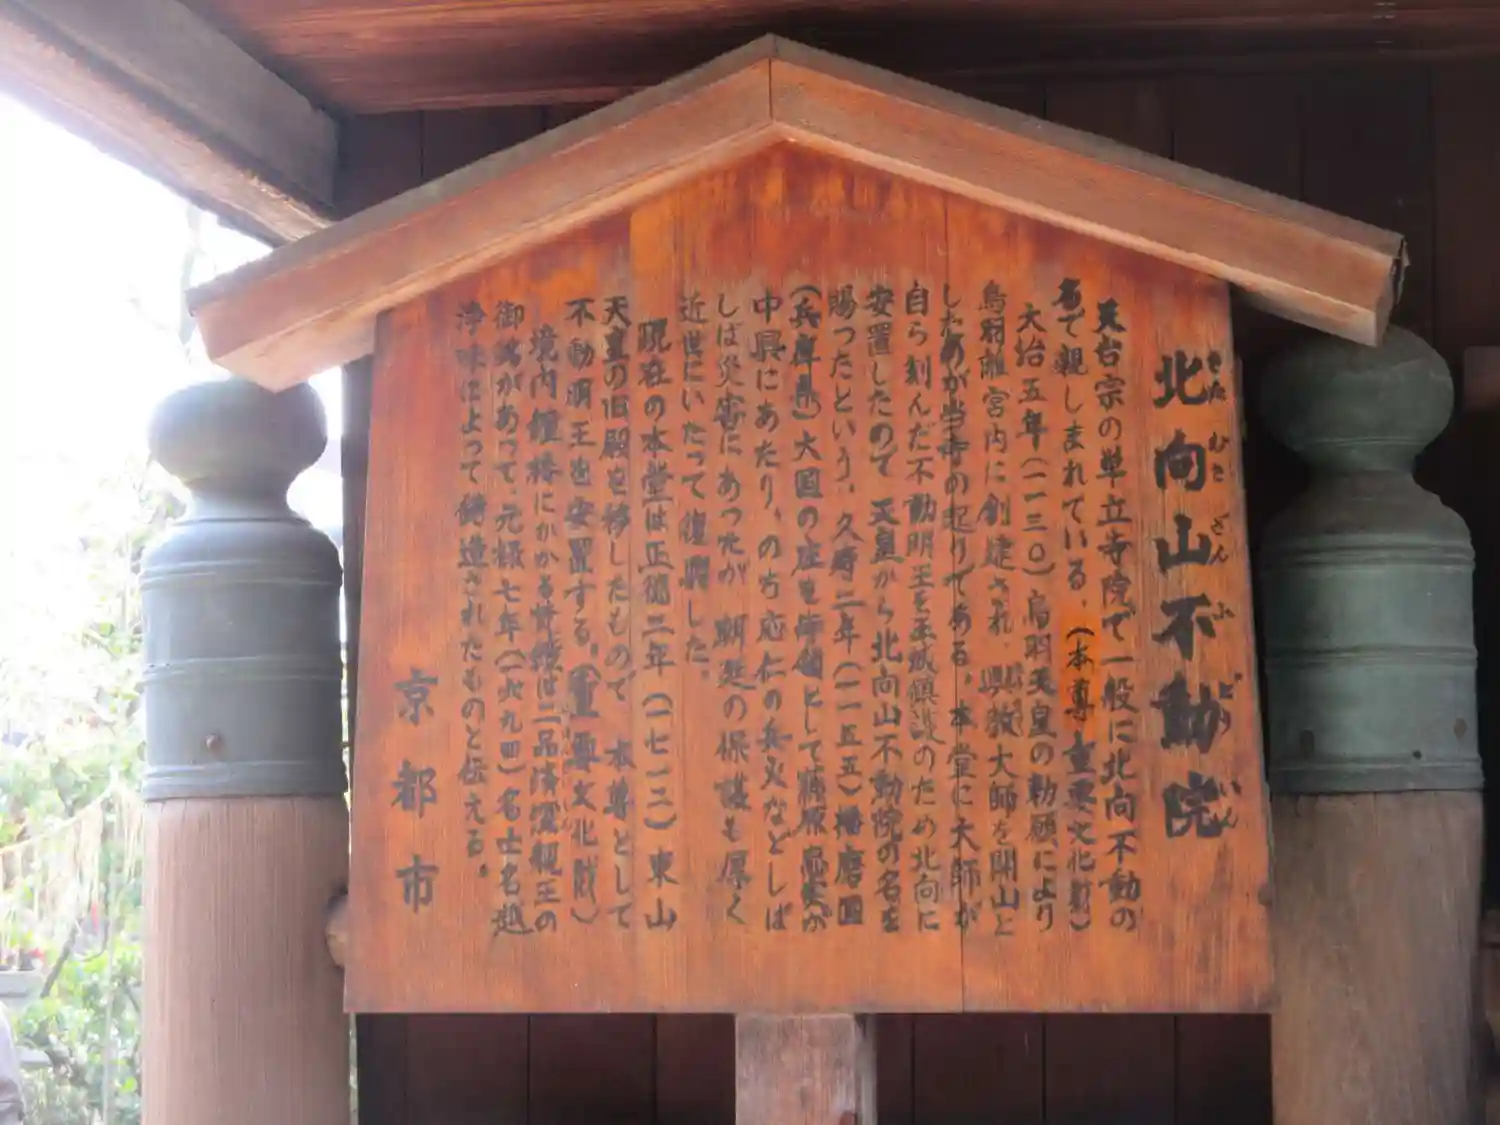 北向山不動院
きた むき ざん ふ どう いん
天台宗の単立寺院で一般に北向不動の
名で親しまれている。(本尊 重要文化財)
大治五年(一一三〇)鳥羽天皇の勅願により
鳥羽離宮内に創建され、興教大師を開山と
したのが当寺の起りである。本堂に大師が
自ら刻んだ不動明王を王城鎮護のため北向に
安置したので天皇から北向山不動院の名を
賜ったという。久寿二年(一一五五)播磨国
(兵庫県)大国の庄を寺領として藤原忠実が
中興にあたり、のち応仁の兵火などしば
しば災害にあったが朝廷の保護も厚く
近世にいたって復興した。
現在の本堂は正徳二年(一七一二)東山
天皇の旧殿を移したもので、本尊として
不動明王を安置する。(重要文化財)
境内鐘楼にかかる梵鐘は二品済深親王の
御銘があって、元禄七年(一六九四)名士名越
浄味によって鋳造されたものと伝える。
京都市